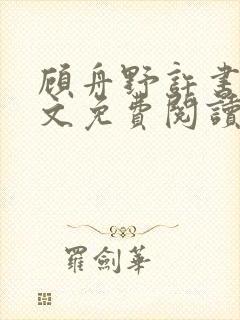 顧舟野許書
文免費閱讀
羅劍華